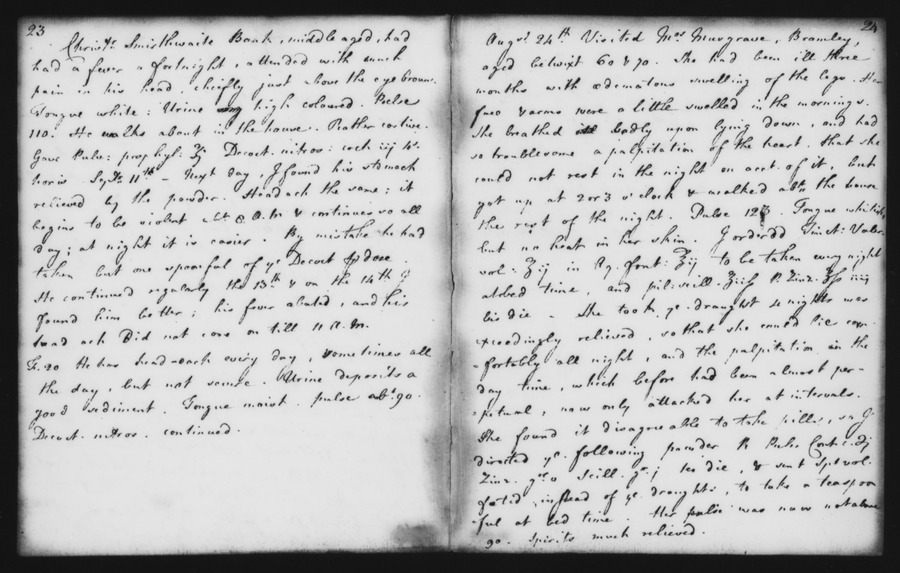 23
Smirthwaite Bank, middle aged, had
had a fever a fortnight, attended with much
pain in his head, chiefly just above the eye brows.
Tongue white: Urine very high coloured. Pulse
110. He walks about in the house. Rather costive.
Gave Pulv: Decoct. nitros: coch iij 4r.
horis Next day, I found his stomach
relieved by the powder. Headach the same; it
begins to be violent abt. 8 A.m & continues so all
day; at night it is easier. By mistake he had
taken but one spoonful of ye Decoct dose
He continued regularly the 13th & on the 14th I
found him better; his fever abated, and his
head ach Did not come on till 11 A.m.
20 He has head-ach every day, sometimes all
the day, but not severe. Urine deposits a
good sediment. Tongue moist. pulse abt. 90.
Decoct. nitros. continued.
24
Augst. 24th Visited Mrs Musgrave, Bramley,
aged betwixt 60 & 70. She had been ill three
months with œdematous swelling of the legs. Her
face & arms were a little swelled in the mornings.
She breathed badly upon lying down, and had
so troublesome a palpitation of the heart, that she
could not rest in the night on acct. of it, but
got up at 2 or 3 o'clock & walked abt. the house
the rest of the night. Pulse Tongue whitish,
but no heat in her skin. I orderdd Tinct: Valer.
vol: Zij in Aq. font: Zij to be taken every night
at bed time, and pil: scill. P. Zinz:
bis die - She took ye. draught 4 nights was
exceedingly relieved, so that she could lie com-
-fortably all night, and the palpitation in the
day time, which before had been almost per-
-petual, now only attacked her at intervals.
She found it disagreeable to take pills, so I
directed ye. following powder R Pulv Cont: c. Zj
Zinz. gr. v Scill. gr. j ter die, & sent Spt vol.
fœtid. instead of ye. draughts, to take a teaspoon
-ful at bed time. Her pulse was now not above
90. Spirits much relieved.